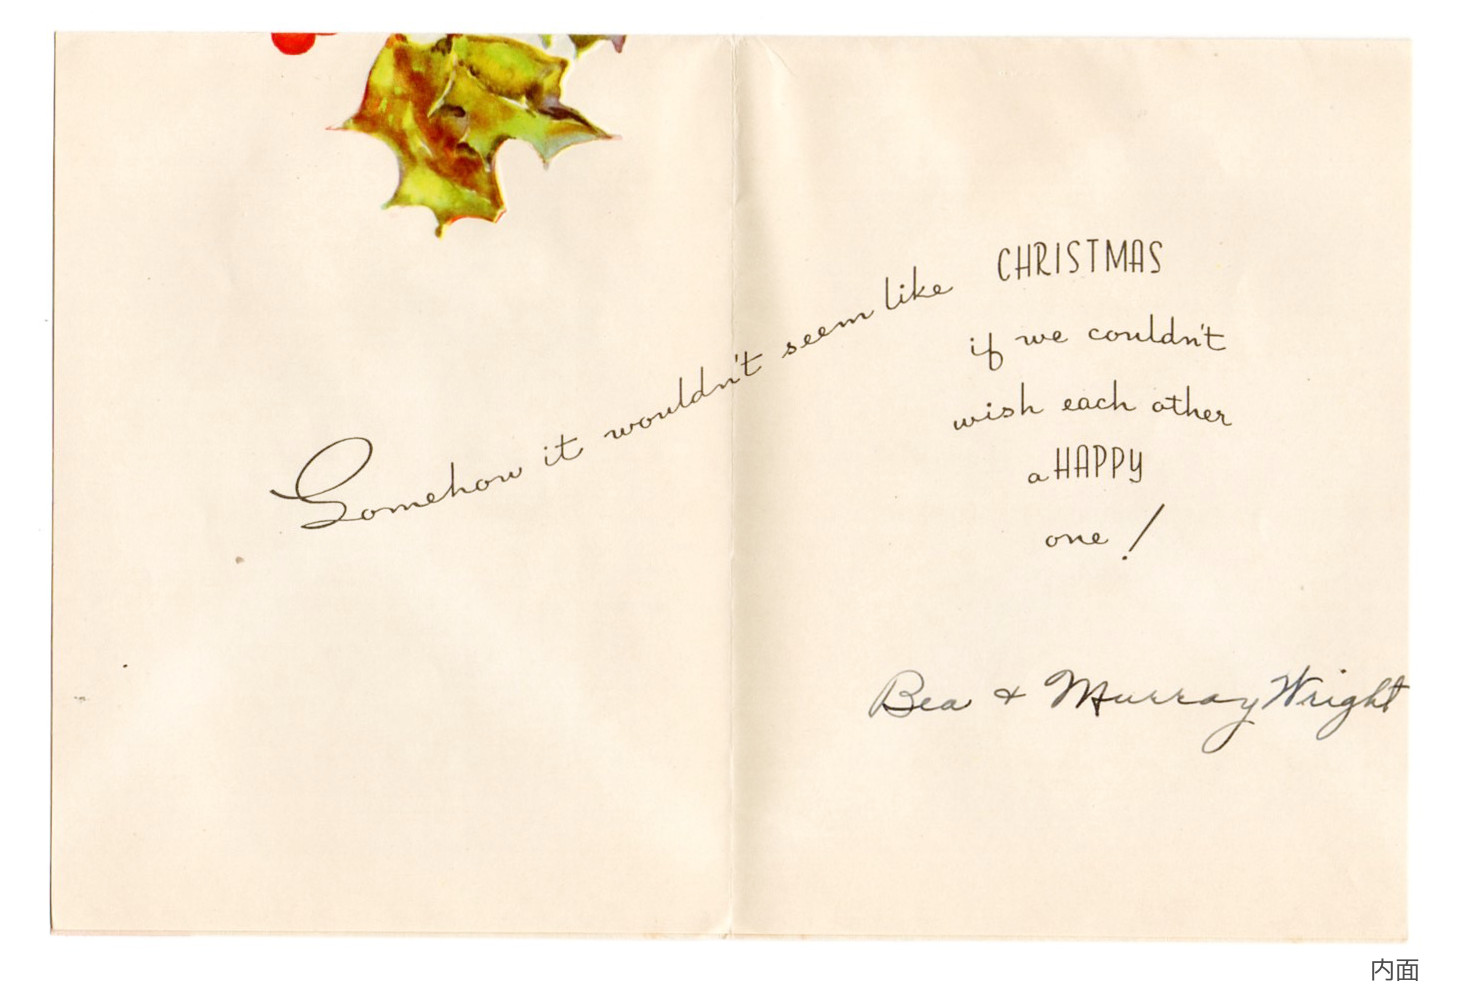 Somehow it wouldn't seem like CHRISTMAS
if we couldn't
wish each other
a HAPPY
one!
Bea & Murray Wright
内面